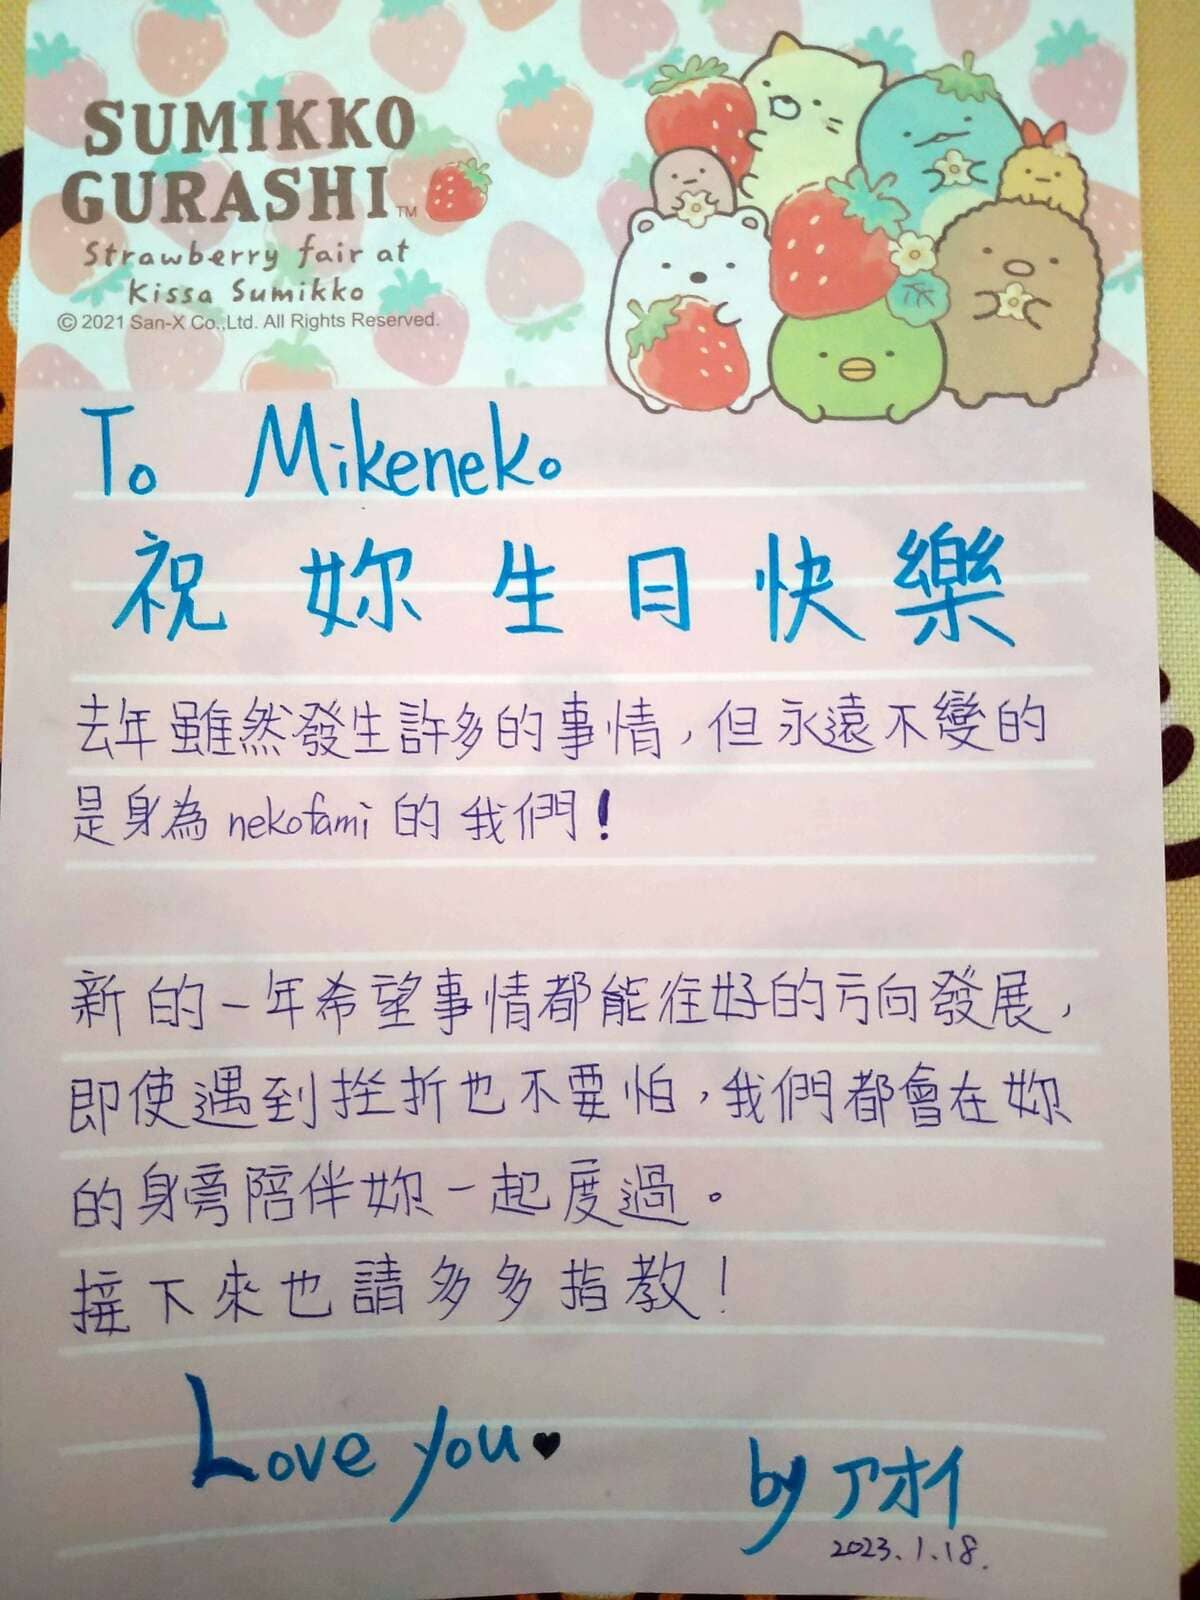 SUMIKKO
GURASHI™
Strawberry fair at
Kissa Sumikko
© 2021 San-X Co.,Ltd. All Rights Reserved.
To Mikeneko
祝妳生日快樂
去年雖然發生許多的事情,但永遠不變的
是身為nekofami的我們!
新的一年希望事情都能往好的方向發展,
即使遇到挫折也不要怕,我們都會在妳
的身旁陪伴妳一起度過。
接下來也請多多指教!
Love you♥
by アオイ
2023.1.18.